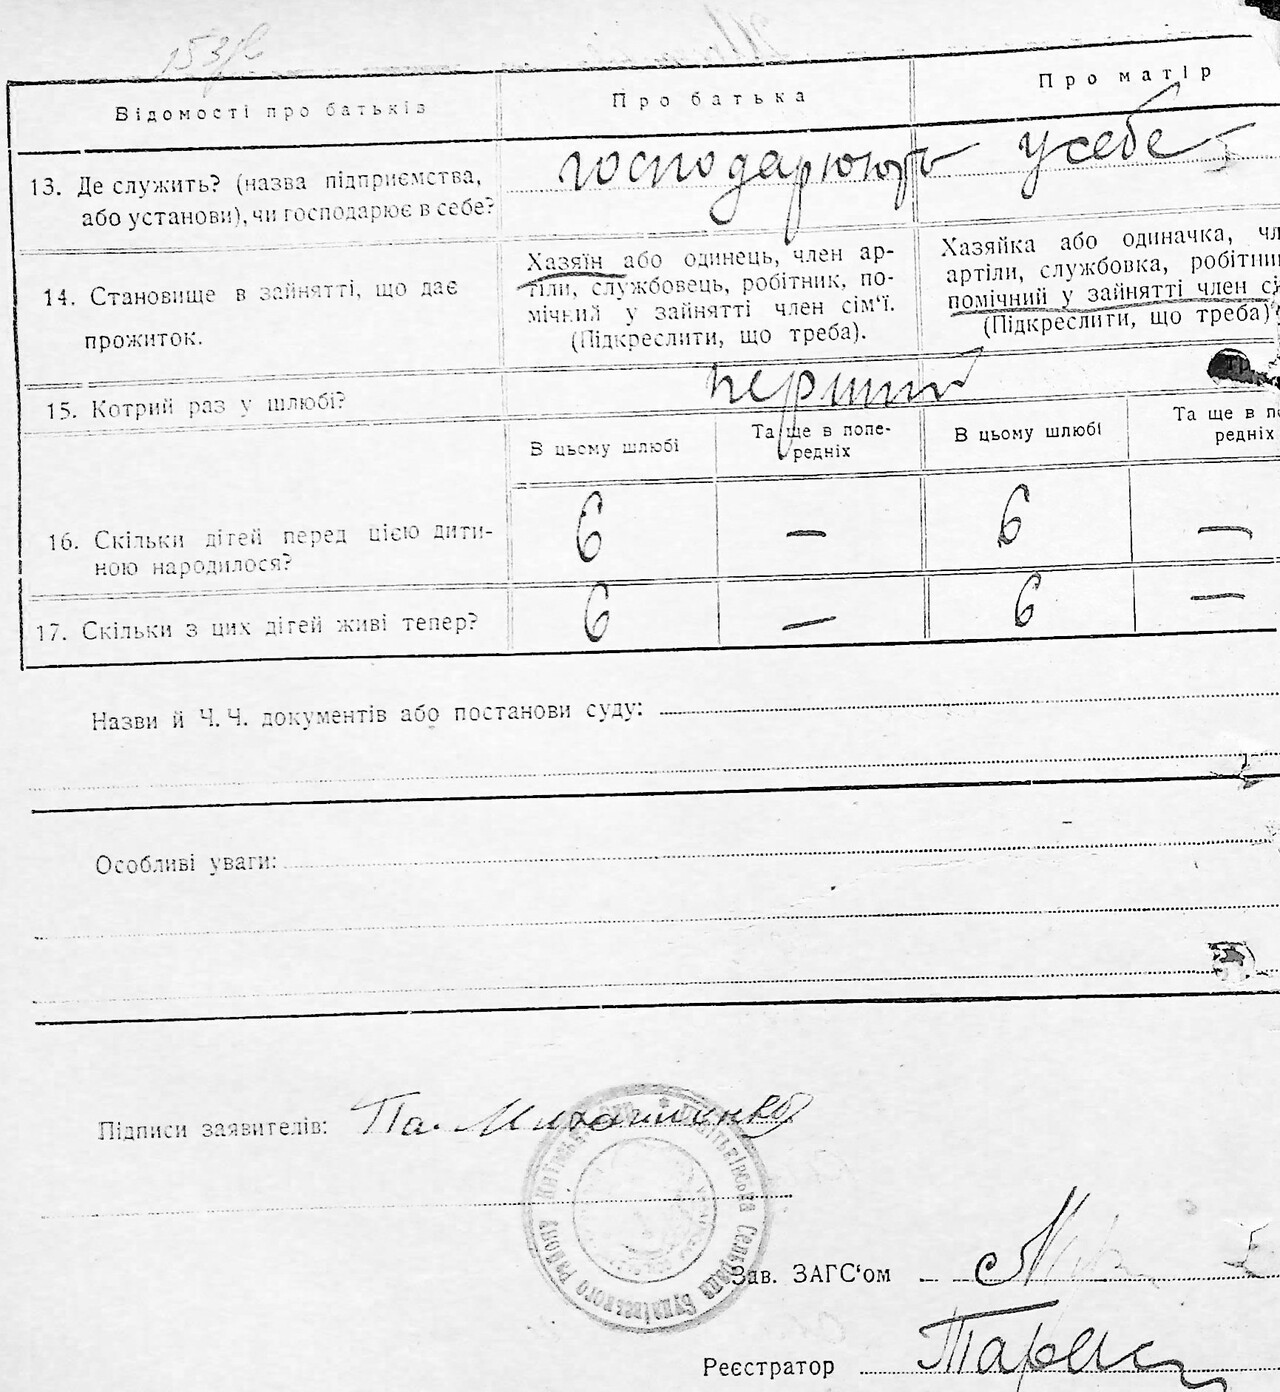 153/в
Відомості про батьків
Про батька
Про матір
13. Де служить? (назва підприємства,
або установи), чи господарює в себе?
господарюють у себе
14. Становище в зайнятті, що дає
прожиток.
Хазяїн або одинець, член ар-
тіли, службовець, робітник, по-
мічний у зайнятті член сім'ї.
(Підкреслити, що треба).
Хазяйка або одиначка, чл
артіли, службовка, робітни
помічний у зайнятті член с
(Підкреслити, що треба)
15. Котрий раз у шлюбі?
перший
В цьому шлюбі
Та ще в попе-
редніх
В цьому шлюбі
Та ще в по
редніх
16. Скільки дітей перед цією дити-
ною народилося?
6 — 6 —
17. Скільки з цих дітей живі тепер?
6 — 6 —
Назви й Ч. Ч. документів або постанови суду:
Особливі уваги:
Підписи заявителів:
Па.
Сельрада Будаївського району
Зав. ЗАГС'ом
Реєстратор
Тарас